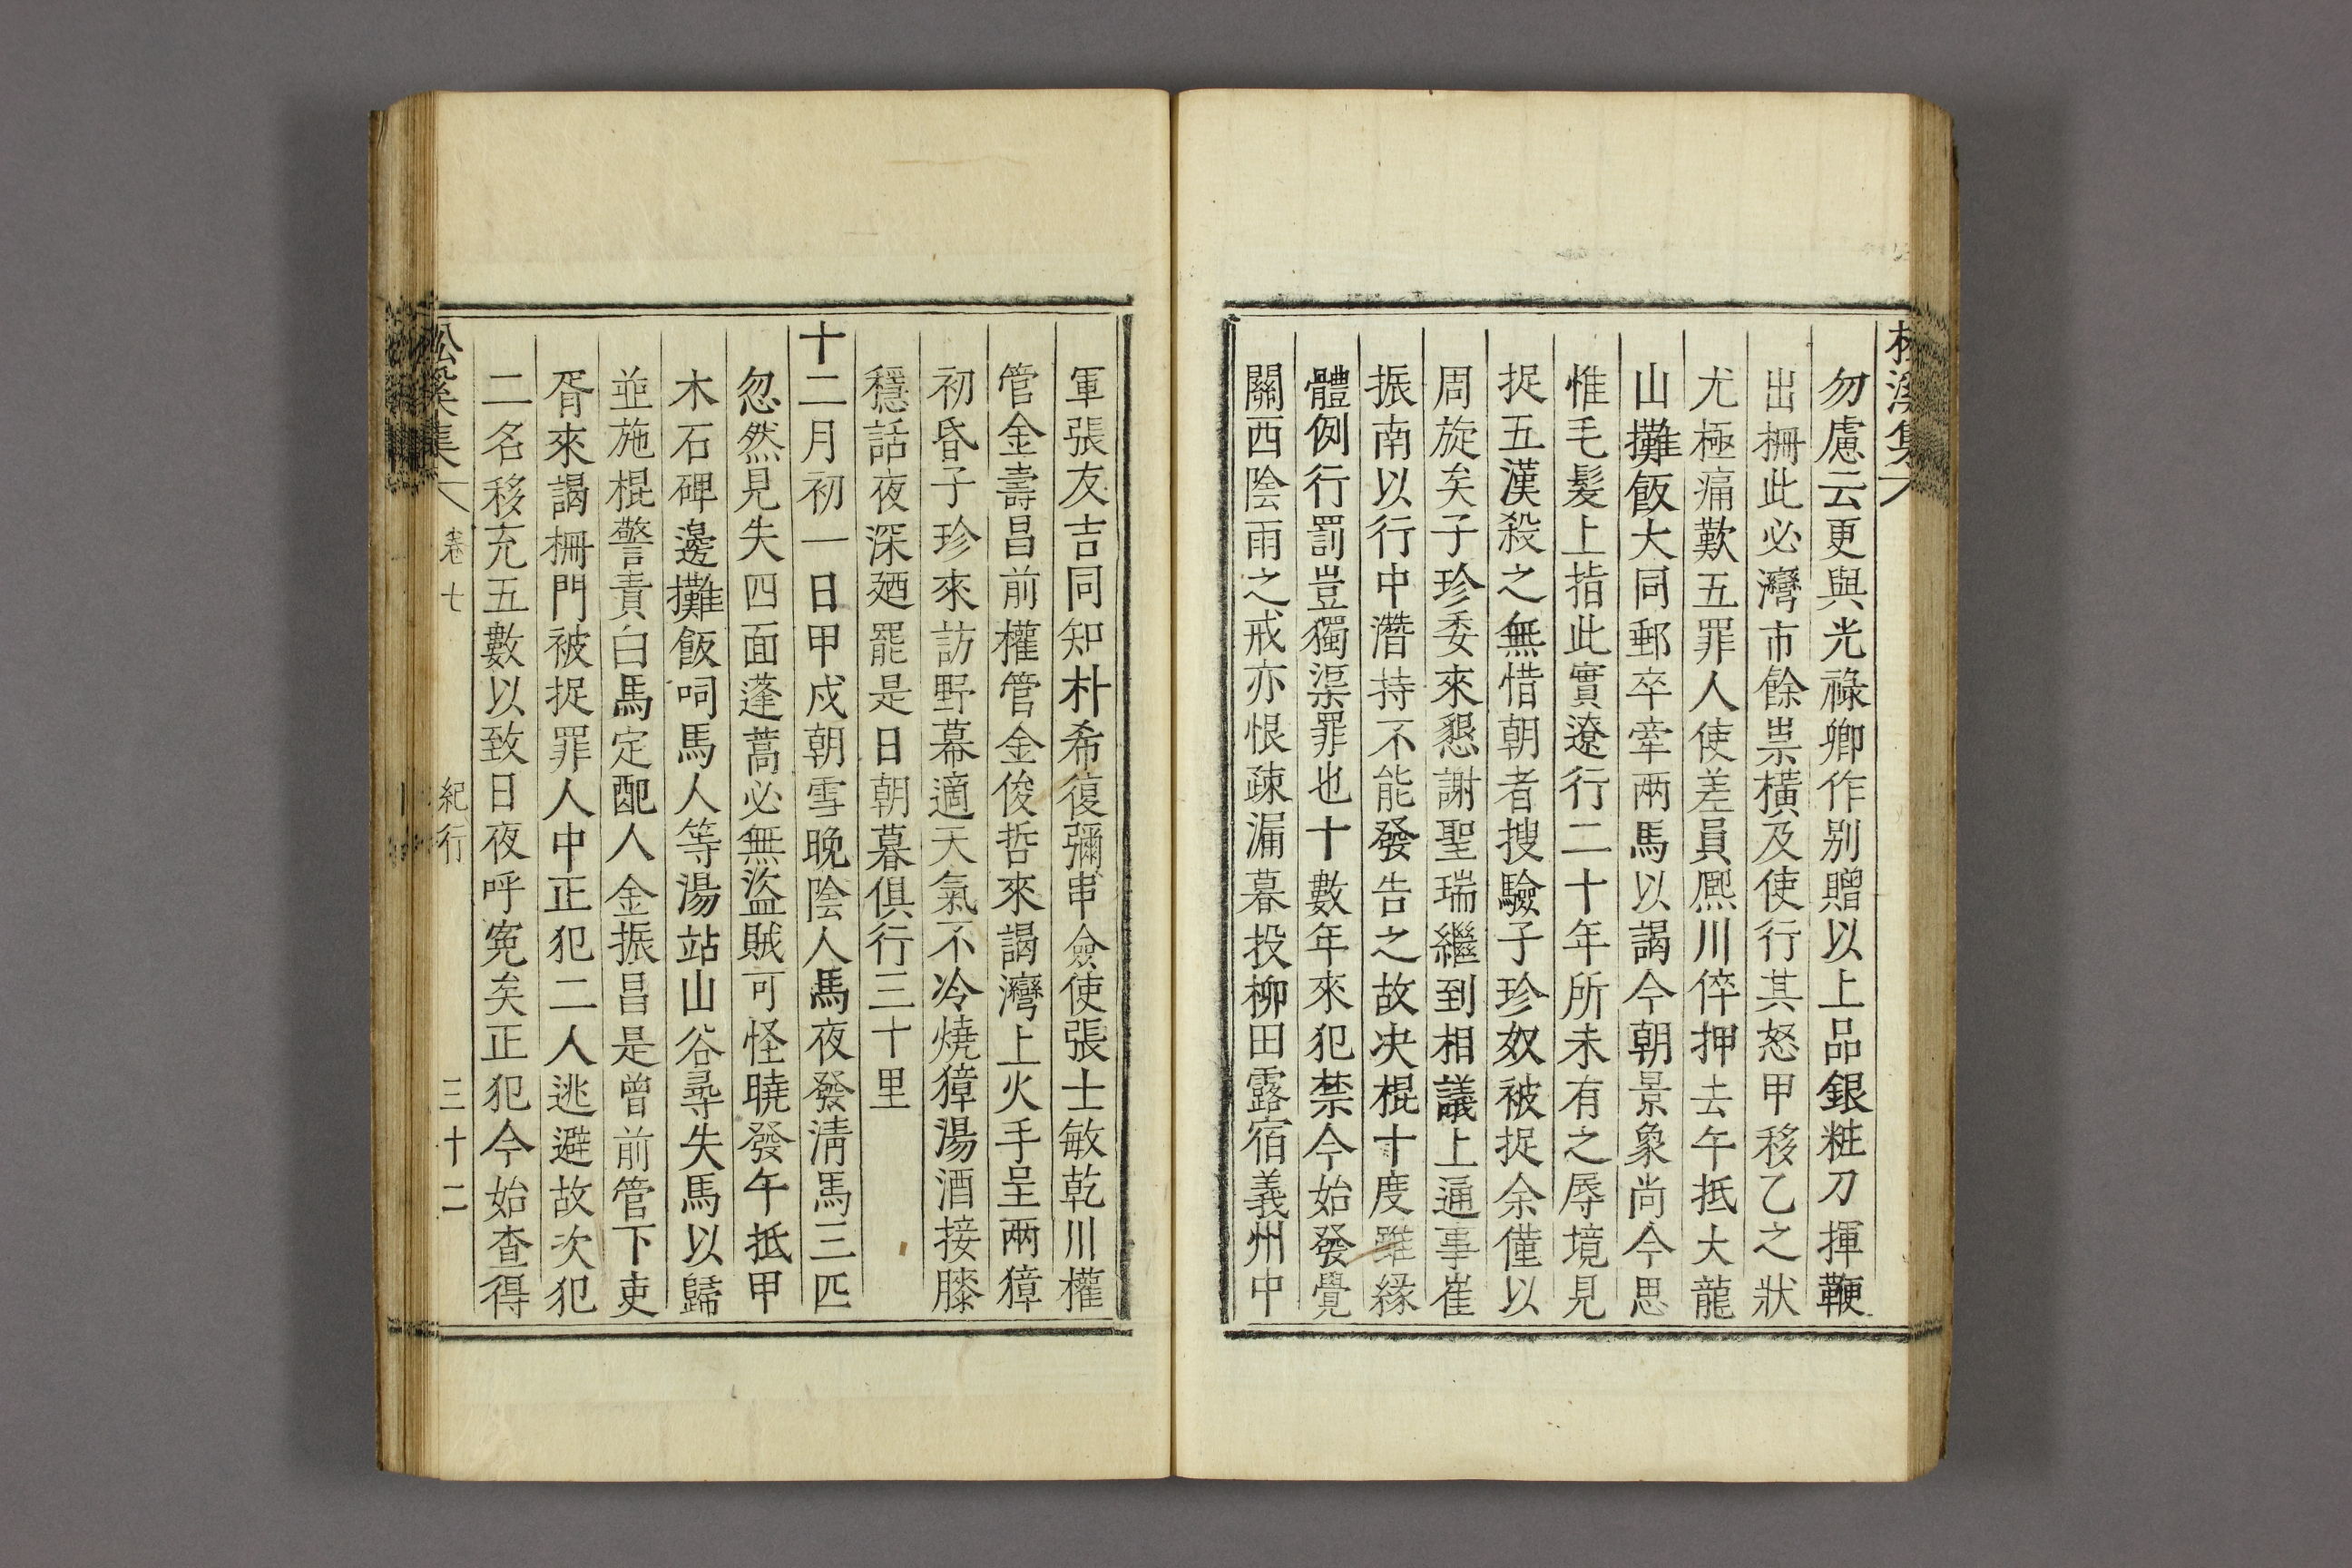 勿慮云更與光祿卿作別贈以上品銀粧刀揮鞭
出柵此必灣市餘祟橫及使行其怒甲移乙之狀
尤極痛歎五罪人使差員熈川倅押去午抵大龍
山攤飯大同郵卒牽兩馬以謁今朝景象尚今思
惟毛髮上指此實遼行二十年所未有之辱境見
捉五漢殺之無惜朝者搜驗子珍奴被捉余僅以
周旋矣子珍委來懇謝聖瑞繼到相議上通事崔
振南以行中潛持不能發告之故决棍十度雖緣
體例行罰豈獨渠罪也十數年來犯禁今始發覺
關西陰雨之戒亦恨疎漏暮投柳田露宿義州中
軍張友吉同知朴希復彌串僉使張士敏乾川權
管金壽昌前權管金俊哲來謁灣上火手呈兩獐
初昏子珍來訪野幕適天氣不冷燒獐湯酒接膝
穩話夜深廼罷是日朝暮俱行三十里
十二月初一日甲戌朝雪晚陰人馬夜發淸馬三匹
忽然見失四面蓬蒿必無盜賊可怪曉發午抵甲
木石碑邊攤飯呞馬人等湯站山谷尋失馬以歸
並施棍警責白馬定配人金振昌是曾前管下吏
胥來謁柵門被捉罪人中正犯二人逃避故次犯
二名移充五數以致日夜呼寃矣正犯今始查得
松溪集 卷七 紀行 三十二